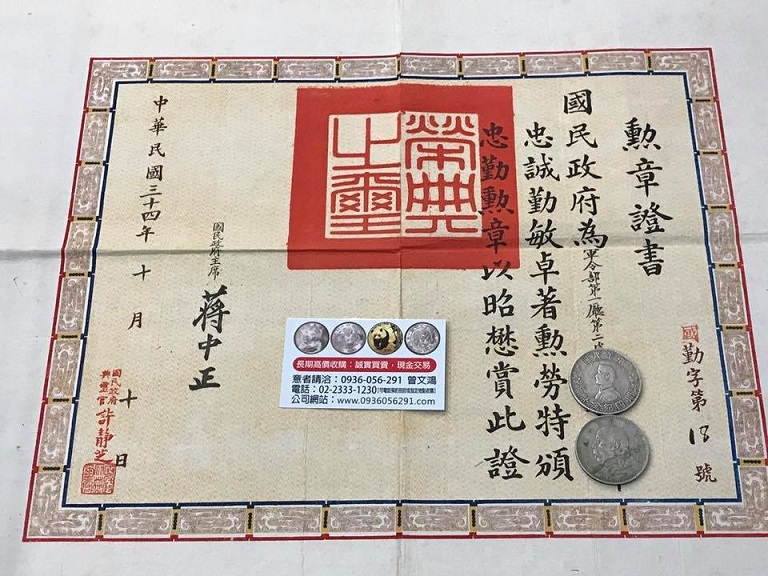 勳章證書
國民政府為軍令部第一廳第二
忠誠勤敏卓著勳勞特頒
忠勤勳章以昭懋賞此證
榮典之璽
國民政府主席
蔣中正
中華民國三十四年十月十日
國民政府
典璽官許靜芝
國
勤字第18號
長期高價收購：誠實買賣，現金交易
意者請洽：0936-056-291 曾文鴻
電話：02-2333-1230
公司網站：www.0936056291.com